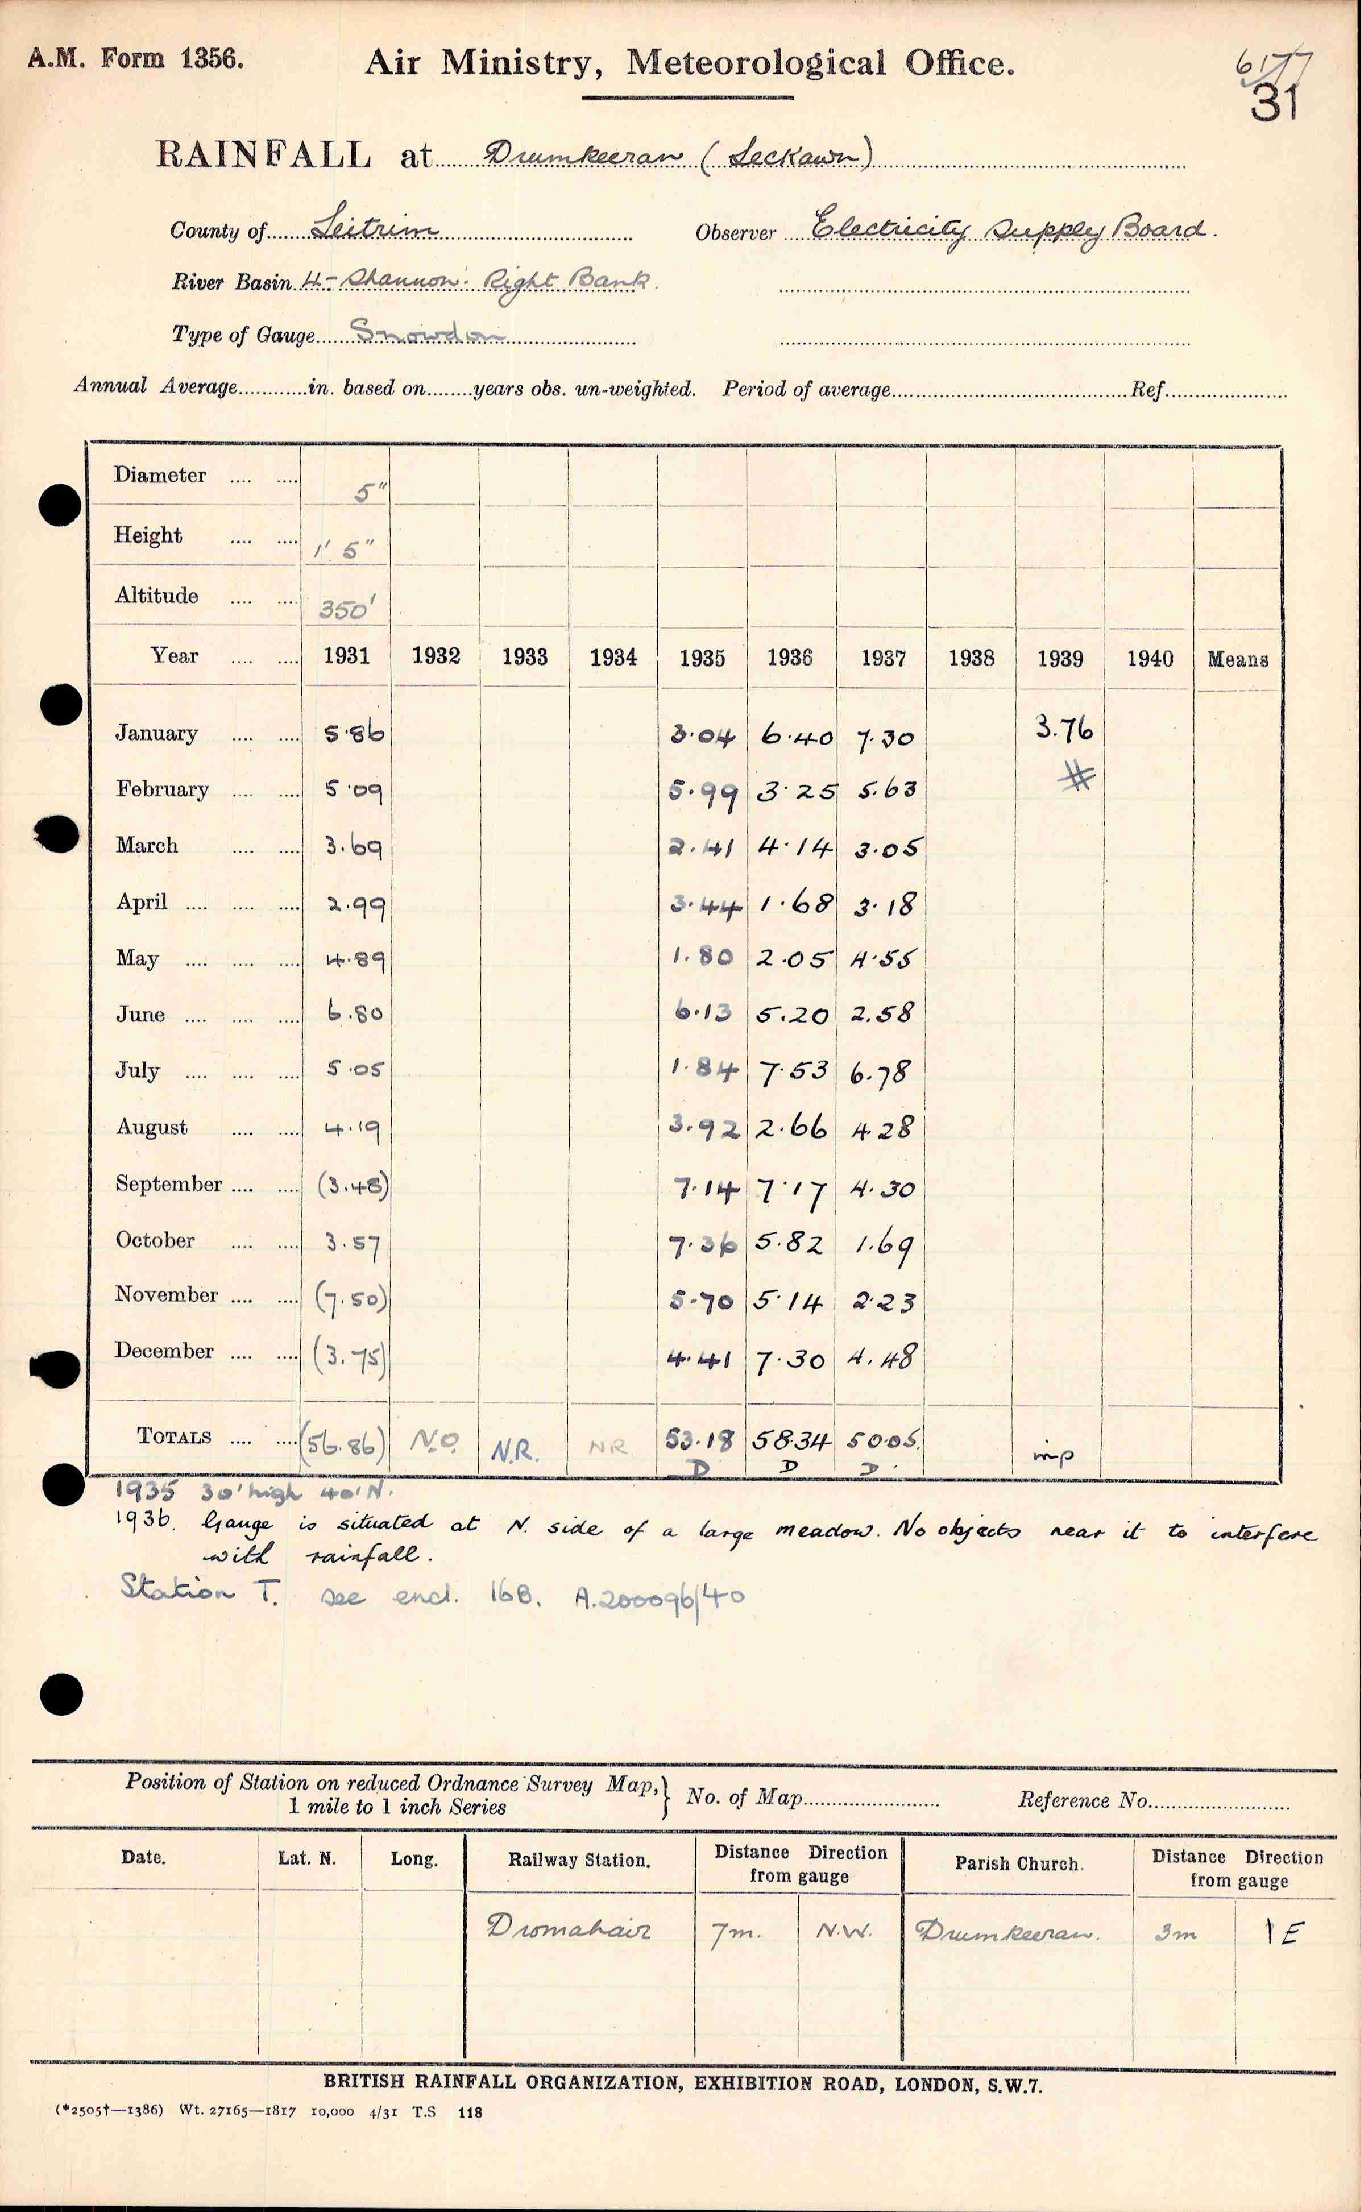 A.M. Form 1356. Air Ministry, Meteorological Office. 6177
31
RAINFALL at Drumkeeran (Leckawn)
County of Leitrim Observer Electricity Supply Board.
River Basin 4- Shannon: Right Bank.
Type of Gauge Snowdon
Annual Average............in. based on........years obs. un-weighted. Period of average.......................................Ref.....................
Diameter .... .... 5"
Height .... .... 1' 5"
Altitude .... .... 350'
Year .... .... 1931 1932 1933 1934 1935 1936 1937 1938 1939 1940 Means
January .... .... 5.86 3.04 6.40 7.30 3.76
February .... .... 5.09 5.99 3.25 5.63 #
March .... .... 3.69 2.41 4.14 3.05
April .... .... .... 2.99 3.44 1.68 3.18
May .... .... .... 4.89 1.80 2.05 4.55
June .... .... .... 6.80 6.13 5.20 2.58
July .... .... .... 5.05 1.84 7.53 6.78
August .... .... 4.19 3.92 2.66 4.28
September .... .... (3.48) 7.14 7.17 4.30
October .... .... 3.57 7.36 5.82 1.69
November .... .... (7.50) 5.70 5.14 2.23
December .... .... (3.75) 4.41 7.30 4.48
TOTALS .... .... (56.86) N.O. N.R. NR 53.18 58.34 50.05. imp
D D D.
1935 30' high 40' N.
1936. Gauge is situated at N. side of a large meadow. No objects near it to interfere
with rainfall.
Station T. see encl. 16B. A.200096/40
Position of Station on reduced Ordnance Survey Map, } No. of Map........................ Reference No.........................
1 mile to 1 inch Series
Date. Lat. N. Long. Railway Station. Distance Direction from gauge Parish Church. Distance Direction from gauge
Dromahair 7m. N.W. Drumkeeran. 3m E
BRITISH RAINFALL ORGANIZATION, EXHIBITION ROAD, LONDON, S.W.7.
(*2505†—1386) Wt. 27165—1817 10,000 4/31 T.S 118